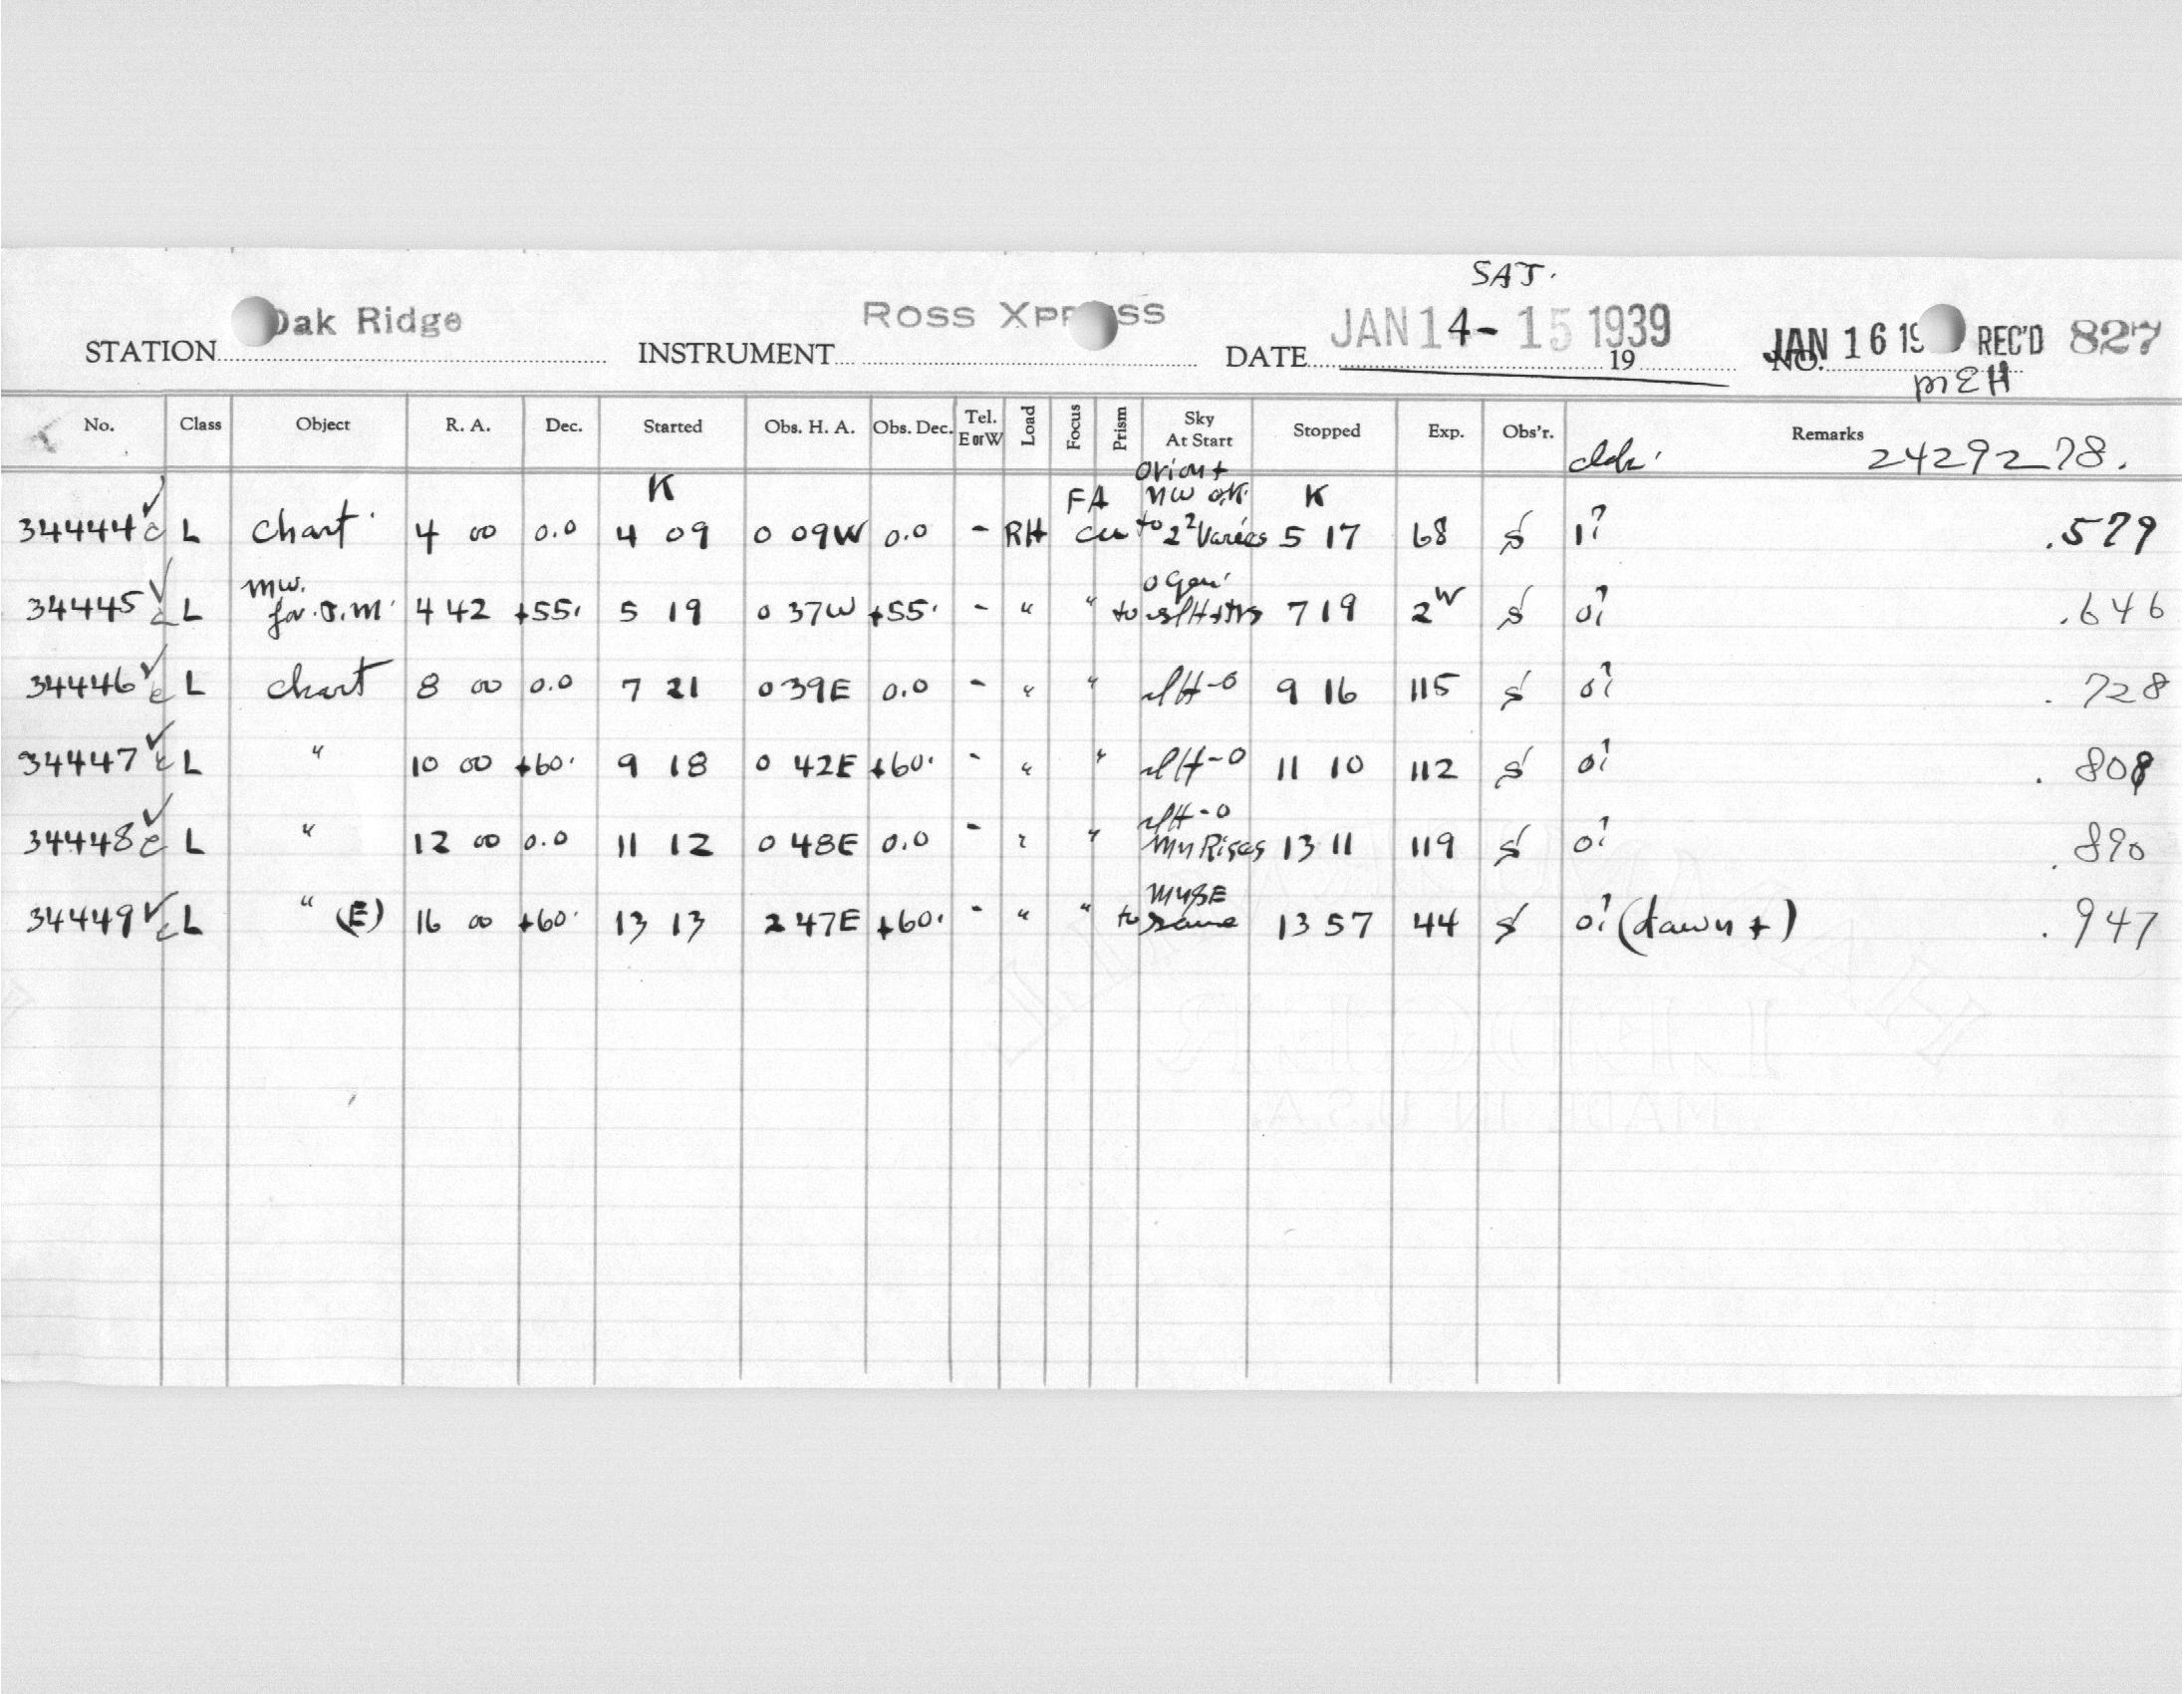 SAT.
STATION Oak Ridge INSTRUMENT ROSS XPRESS DATE JAN 14-15 1939 19 JAN 16 19 REC'D 827
NO.
MEH
No. Class Object R. A. Dec. Started Obs. H. A. Obs. Dec. Tel. E or W Load Focus Prism Sky At Start Stopped Exp. Obs'r. Remarks
2429278.
K FA Orion + MW K
34444 c L Chart 4 00 0.0 4 09 0 09W 0.0 - RH to 2² Varies 5 17 68 S 1? .579
34445 c L MW. for J.M. 4 42 +55. 5 19 0 37W +55. - " " to 7 19 2 S 0? .646
34446 c L chart 8 00 0.0 7 21 0 39E 0.0 - " " 9 16 115 S 0? .728
34447 c L " 10 00 +60. 9 18 0 42E +60. - " " 11 10 112 S 0? .808
34448 c L " 12 00 0.0 11 12 0 48E 0.0 - " " Mn Rises 13 11 119 S 0? .890
34449 c L " (E) 16 00 +60. 13 13 2 47E +60. - " " to same 13 57 44 S 0? (dawn +) .947
LEDGER
MADE IN U.S.A.